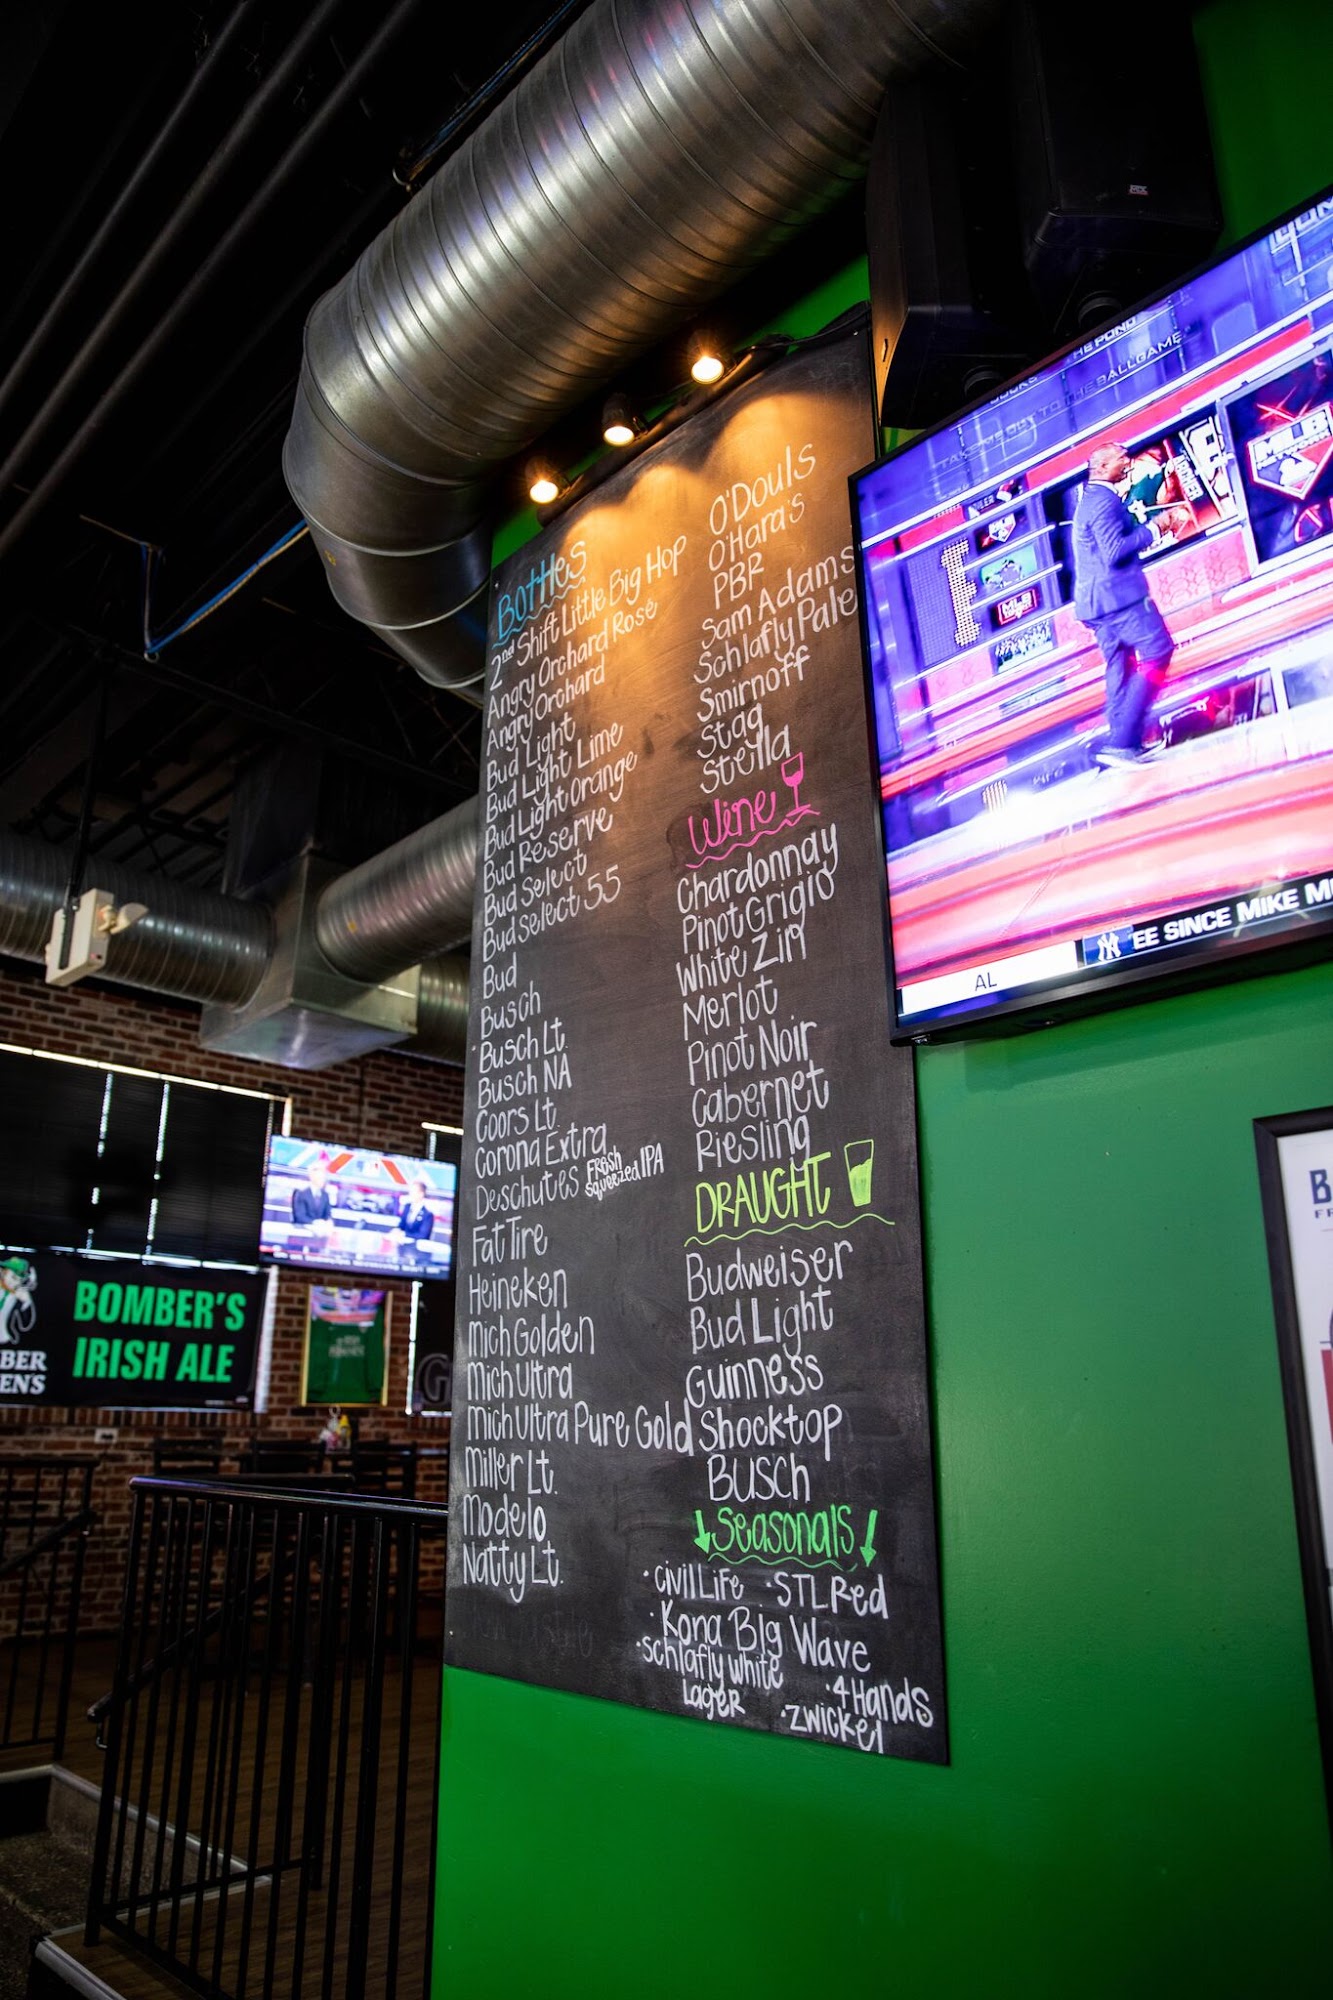 Bottles
2nd Shift Little Big Hop
Angry Orchard Rosé
Angry Orchard
Bud Light
Bud Light Lime
Bud Light Orange
Bud Reserve
Bud Select
Bud Select 55
Bud
Busch
Busch Lt.
Busch NA
Coors Lt.
Corona Extra
Deschutes Fresh Squeezed IPA
Fat Tire
Heineken
Mich Golden
Mich Ultra
Mich Ultra Pure Gold
Miller Lt.
Modelo
Natty Lt.
O'Douls
O'Hara's
PBR
Sam Adams
Schlafly Pale
Smirnoff
Stag
Stella
Wine
Chardonnay
Pinot Grigio
White Zin
Merlot
Pinot Noir
Cabernet
Riesling
DRAUGHT
Budweiser
Bud Light
Guinness
Shocktop
BUSCH
Seasonals
·Civil Life ·STL Red
·Kona Big Wave
·Schlafly White
Lager
·4 Hands
·Zwickel
THE POND
TAKE ME OUT TO THE BALLGAME
MLB
AL
EE SINCE MIKE M
BOMBER'S
IRISH ALE
BER
ENS